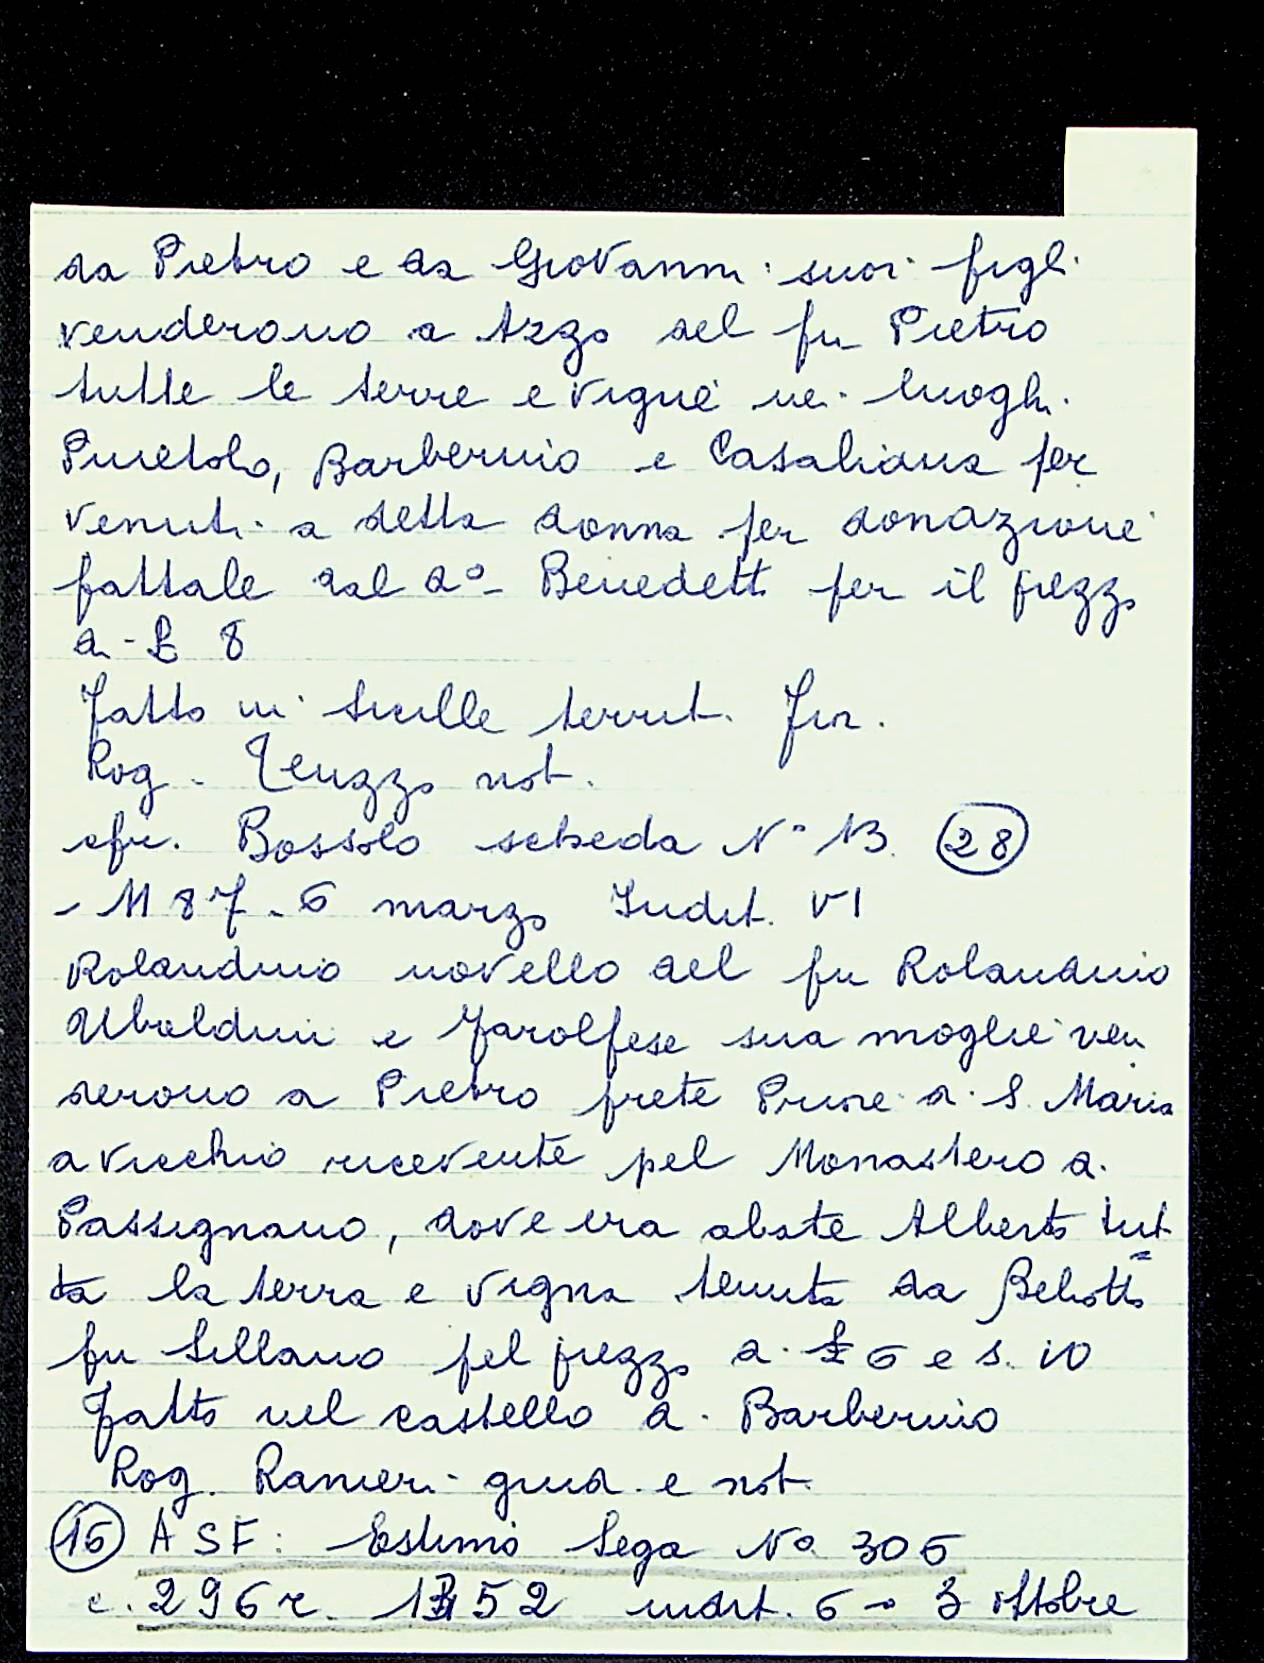 da Pietro e da Giovanni suoi figli
venderono a Azzo del fu Pietro
tutte le terre e vigne nei luoghi
Pinetolo, Barberino e Casaliana per
venuti a detta donna per donazione
fattale dal do Benedetto per il prezzo
di £ 8
Fatto in Sicille territ. Fior.
Rog. Teuzzo not.
cfr. Bossolo scheda No 13. 28
- 1187 - 6 marzo Indit. VI
Rolandino novello del fu Rolandino
Ubaldini e Farolfese sua moglie ven
derono a Pietro prete Priore di S. Maria
a Vicchio ricevente pel Monastero di
Passignano, dove era abate Alberto tut=
ta la terra e vigna tenuta da Beliotto
fu Sillano pel prezzo di £ 6 e s. 10
Fatto nel castello di Barberino
Rog. Ranieri giud. e not.
16 ASF: Estimo Lega No 306
c. 296r. 1352 indit. 6a 3 ottobre